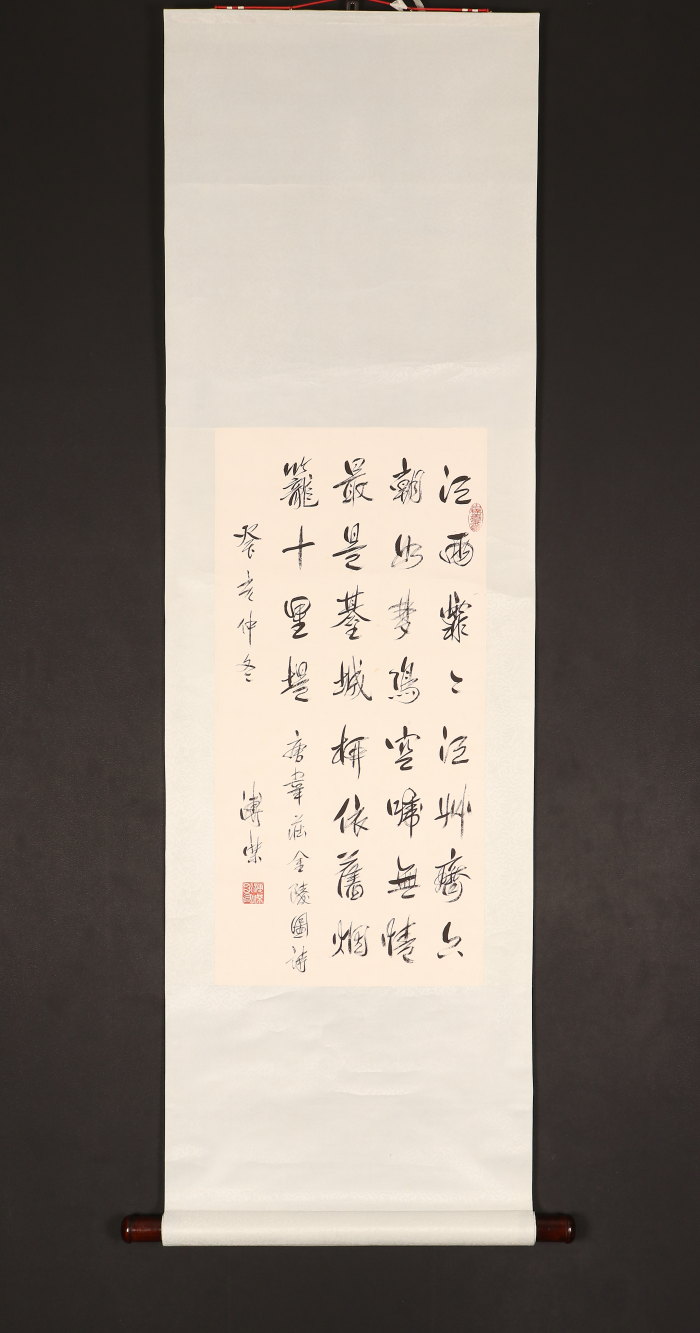 江雨霏〻江艸齊六
朝如夢鳥空啼無情
最是臺城柳依舊烟
籠十里堤 唐韋莊金陵圖詩
癸 仲冬 溥傑